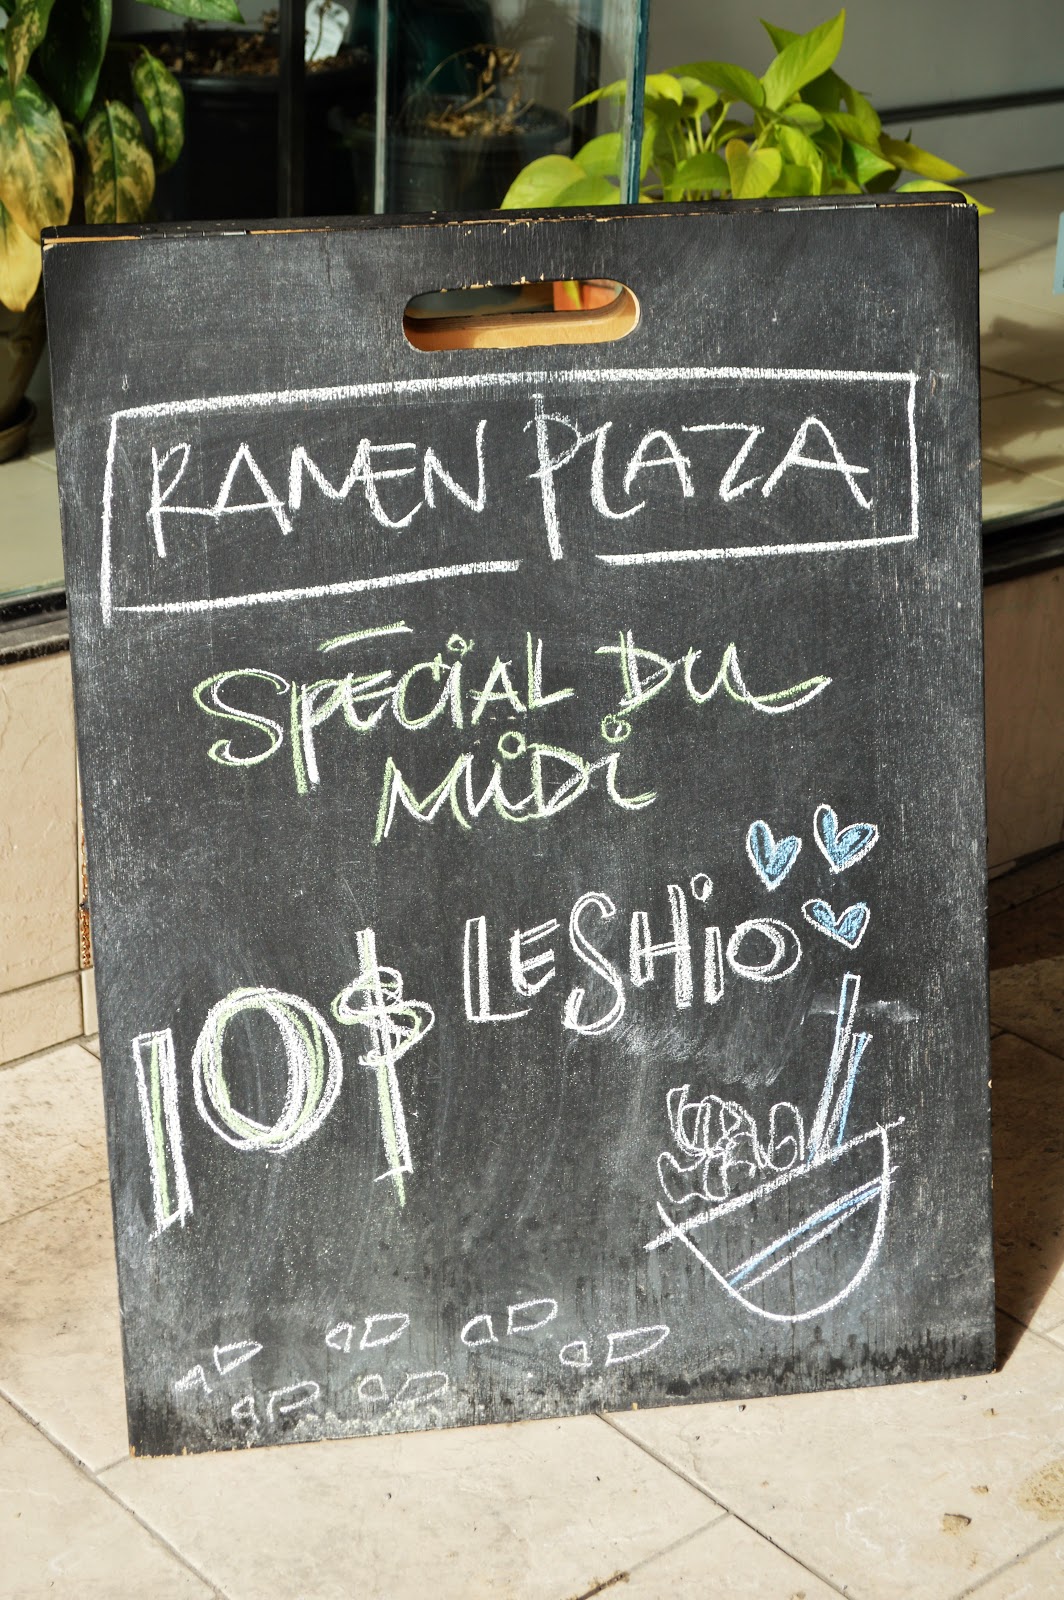 RAMEN PLAZA
SPECIAL DU
MIDI
LE SHIO
10$